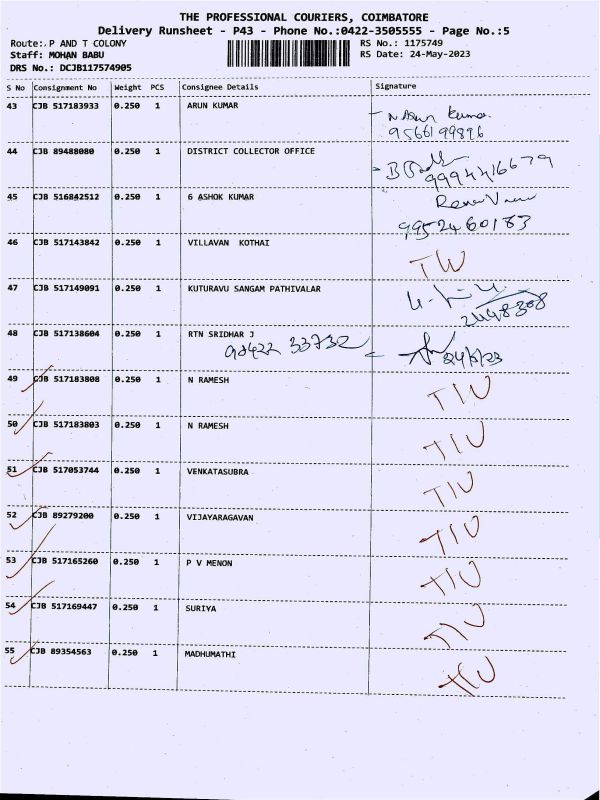 THE PROFESSIONAL COURIERS, COIMBATORE
Delivery Runsheet - P43 - Phone No.:0422-3505555 - Page No.:5
Route: P AND T COLONY
RS No.: 1175749
Staff: MOHAN BABU
RS Date: 24-May-2023
DRS No.: DCJB117574905
S No Consignment No Weight PCS Consignee Details Signature
43 CJB 517183933 0.250 1 ARUN KUMAR N Arun Kumar
9566199896
44 CJB 89488080 0.250 1 DISTRICT COLLECTOR OFFICE
9994416679
45 CJB 516842512 0.250 1 6 ASHOK KUMAR
9952460183
46 CJB 517143842 0.250 1 VILLAVAN KOTHAI TIW
47 CJB 517149091 0.250 1 KUTURAVU SANGAM PATHIVALAR
2448308
48 CJB 517138604 0.250 1 RTN SRIDHAR J
98422 33732 24/5/23
49 CJB 517183808 0.250 1 N RAMESH TIW
50 CJB 517183803 0.250 1 N RAMESH TIW
51 CJB 517053744 0.250 1 VENKATASUBRA TIW
52 CJB 89279200 0.250 1 VIJAYARAGAVAN TIW
53 CJB 517165260 0.250 1 P V MENON TIW
54 CJB 517169447 0.250 1 SURIYA TIW
55 CJB 89354563 0.250 1 MADHUMATHI TIW